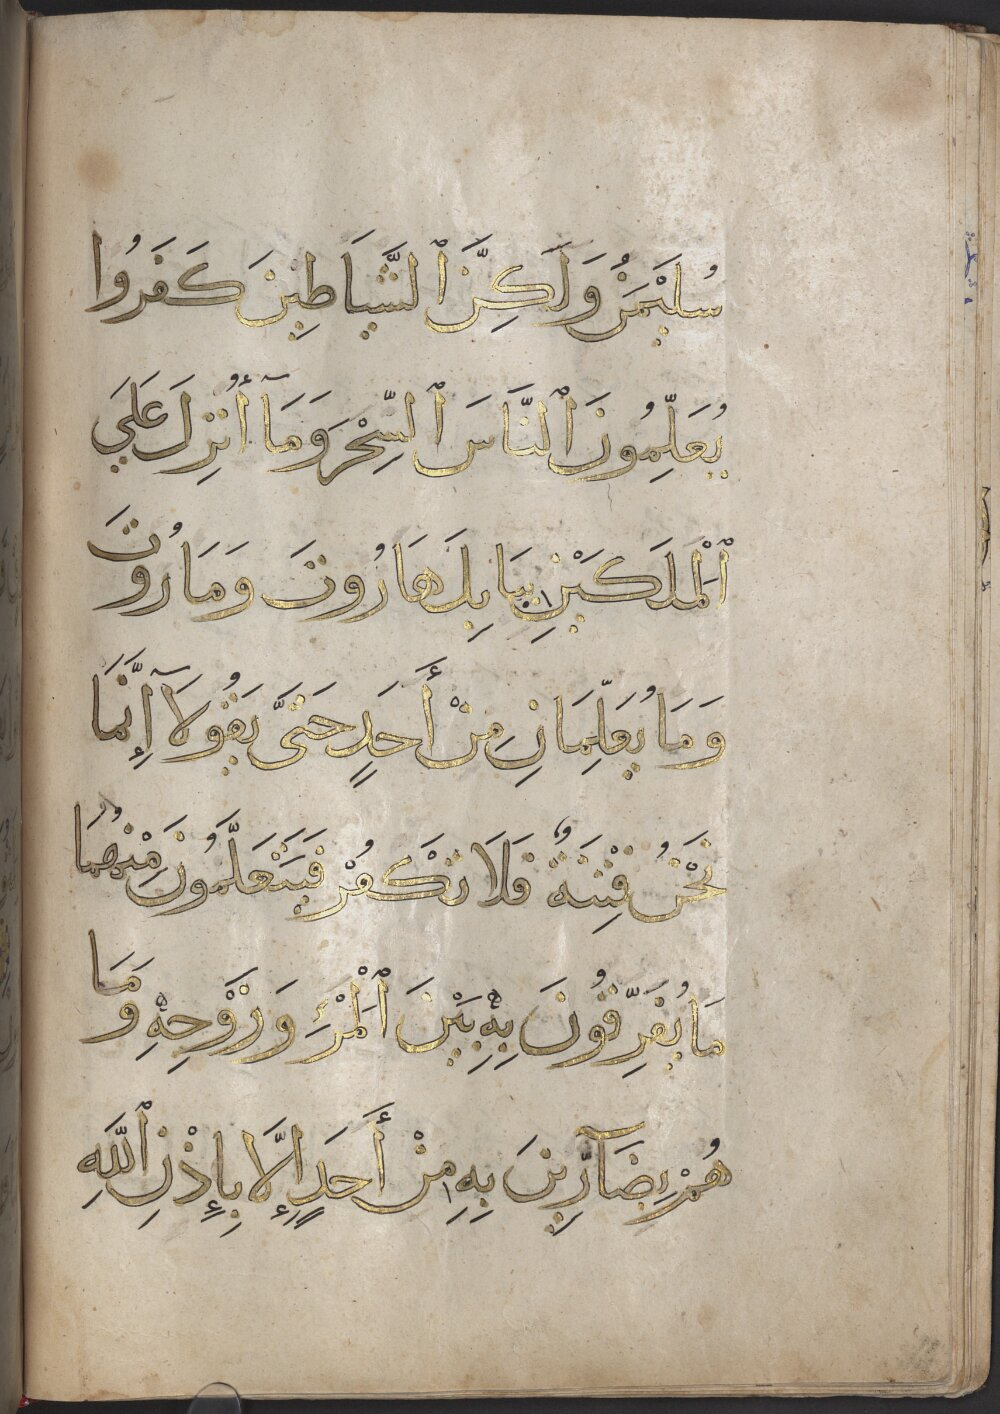 سُلَيْمَنُ وَلَكِنَّ ٱلشَّيَاطِينَ كَفَرُوا
يُعَلِّمُونَ ٱلنَّاسَ ٱلسِّحْرَ وَمَآ أُنْزِلَ عَلَي
ٱلْمَلَكَيْنِ بِبَابِلَ هَارُوتَ وَمَارُوتَ
وَمَا يُعَلِّمَانِ مِنْ أَحَدٍ حَتَّى يَقُولَآ إِنَّمَا
نَحْنُ فِتْنَةٌ فَلَا تَكْفُرْ فَيَتَعَلَّمُونَ مِنْهُمَا
مَا يُفَرِّقُونَ بِهِ بَيْنَ ٱلْمَرْءِ وَزَوْجِهِ وَمَا
هُمْ بِضَآرِّينَ بِهِ مِنْ أَحَدٍ إِلَّا بِإِذْنِ ٱللَّهِ